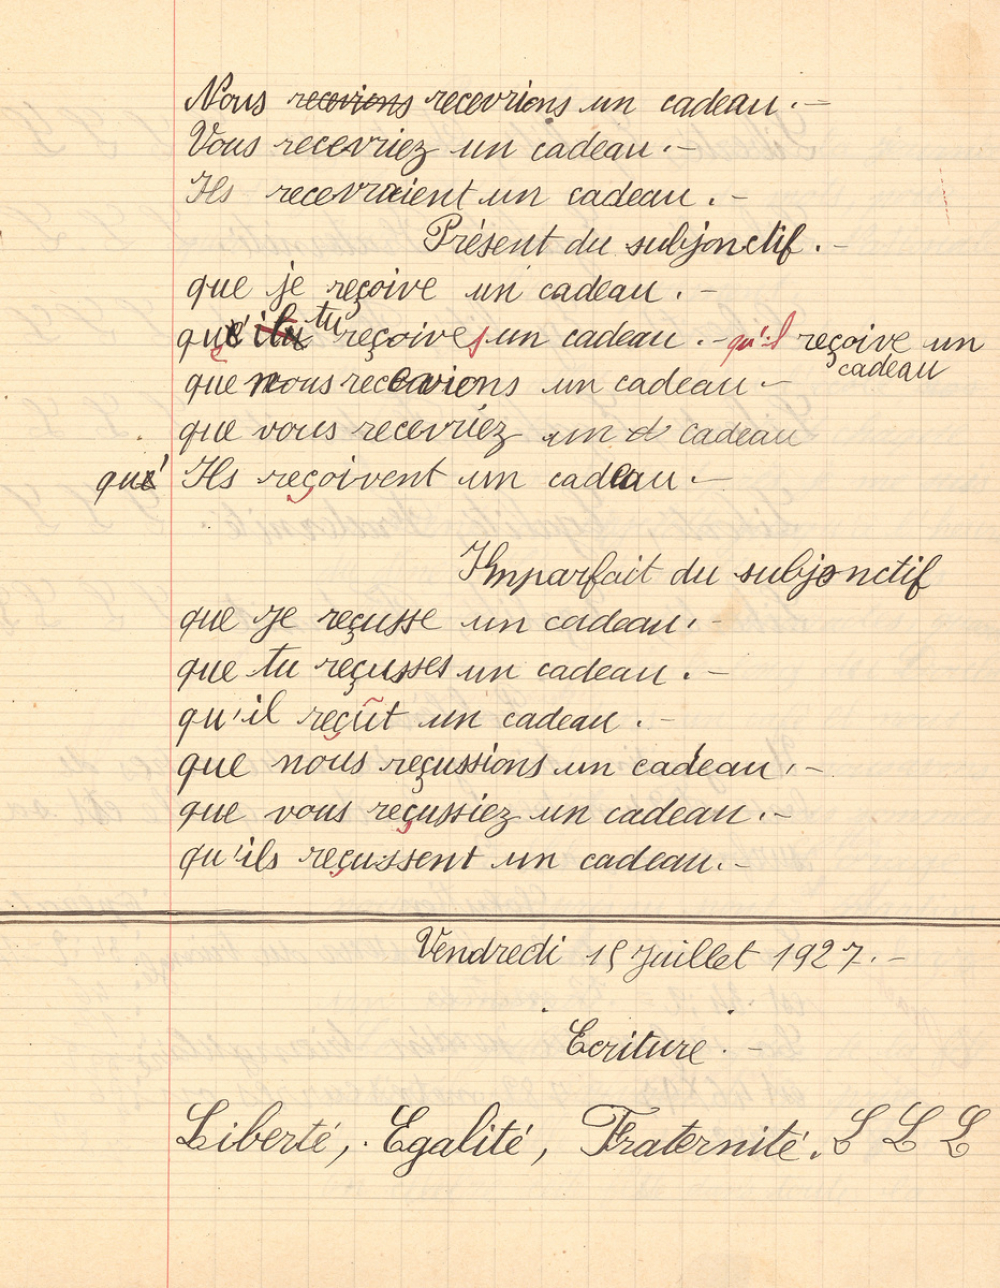 Nous recevions recevrions un cadeau. –
Vous recevriez un cadeau. –
Ils recevraient un cadeau. –
Présent du subjonctif. –
que je reçoive un cadeau. –
que tu reçoives un cadeau. – qu'il reçoive un
cadeau
que nous recevions un cadeau –
que vous recevriez un cadeau
qu' Ils reçoivent un cadeau. –
Imparfait du subjonctif
que je reçusse un cadeau. –
que tu reçusses un cadeau. –
qu'il reçût un cadeau. –
que nous reçussions un cadeau. –
que vous reçussiez un cadeau. –
qu'ils reçussent un cadeau. –
Vendredi 15 Juillet 1927. –
Ecriture. –
Liberté, Egalité, Fraternité. L L L